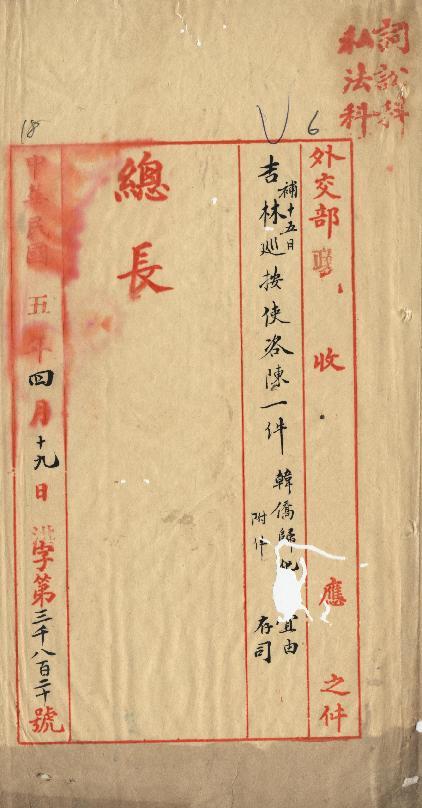 詞訟科
私法科
6
18
外交部 收 應 之件
補十五日
吉林巡按使咨陳一件 韓僑歸化 宜由
附件 存司
總長
中華民國五年四月十九日 字第三千八百二十號